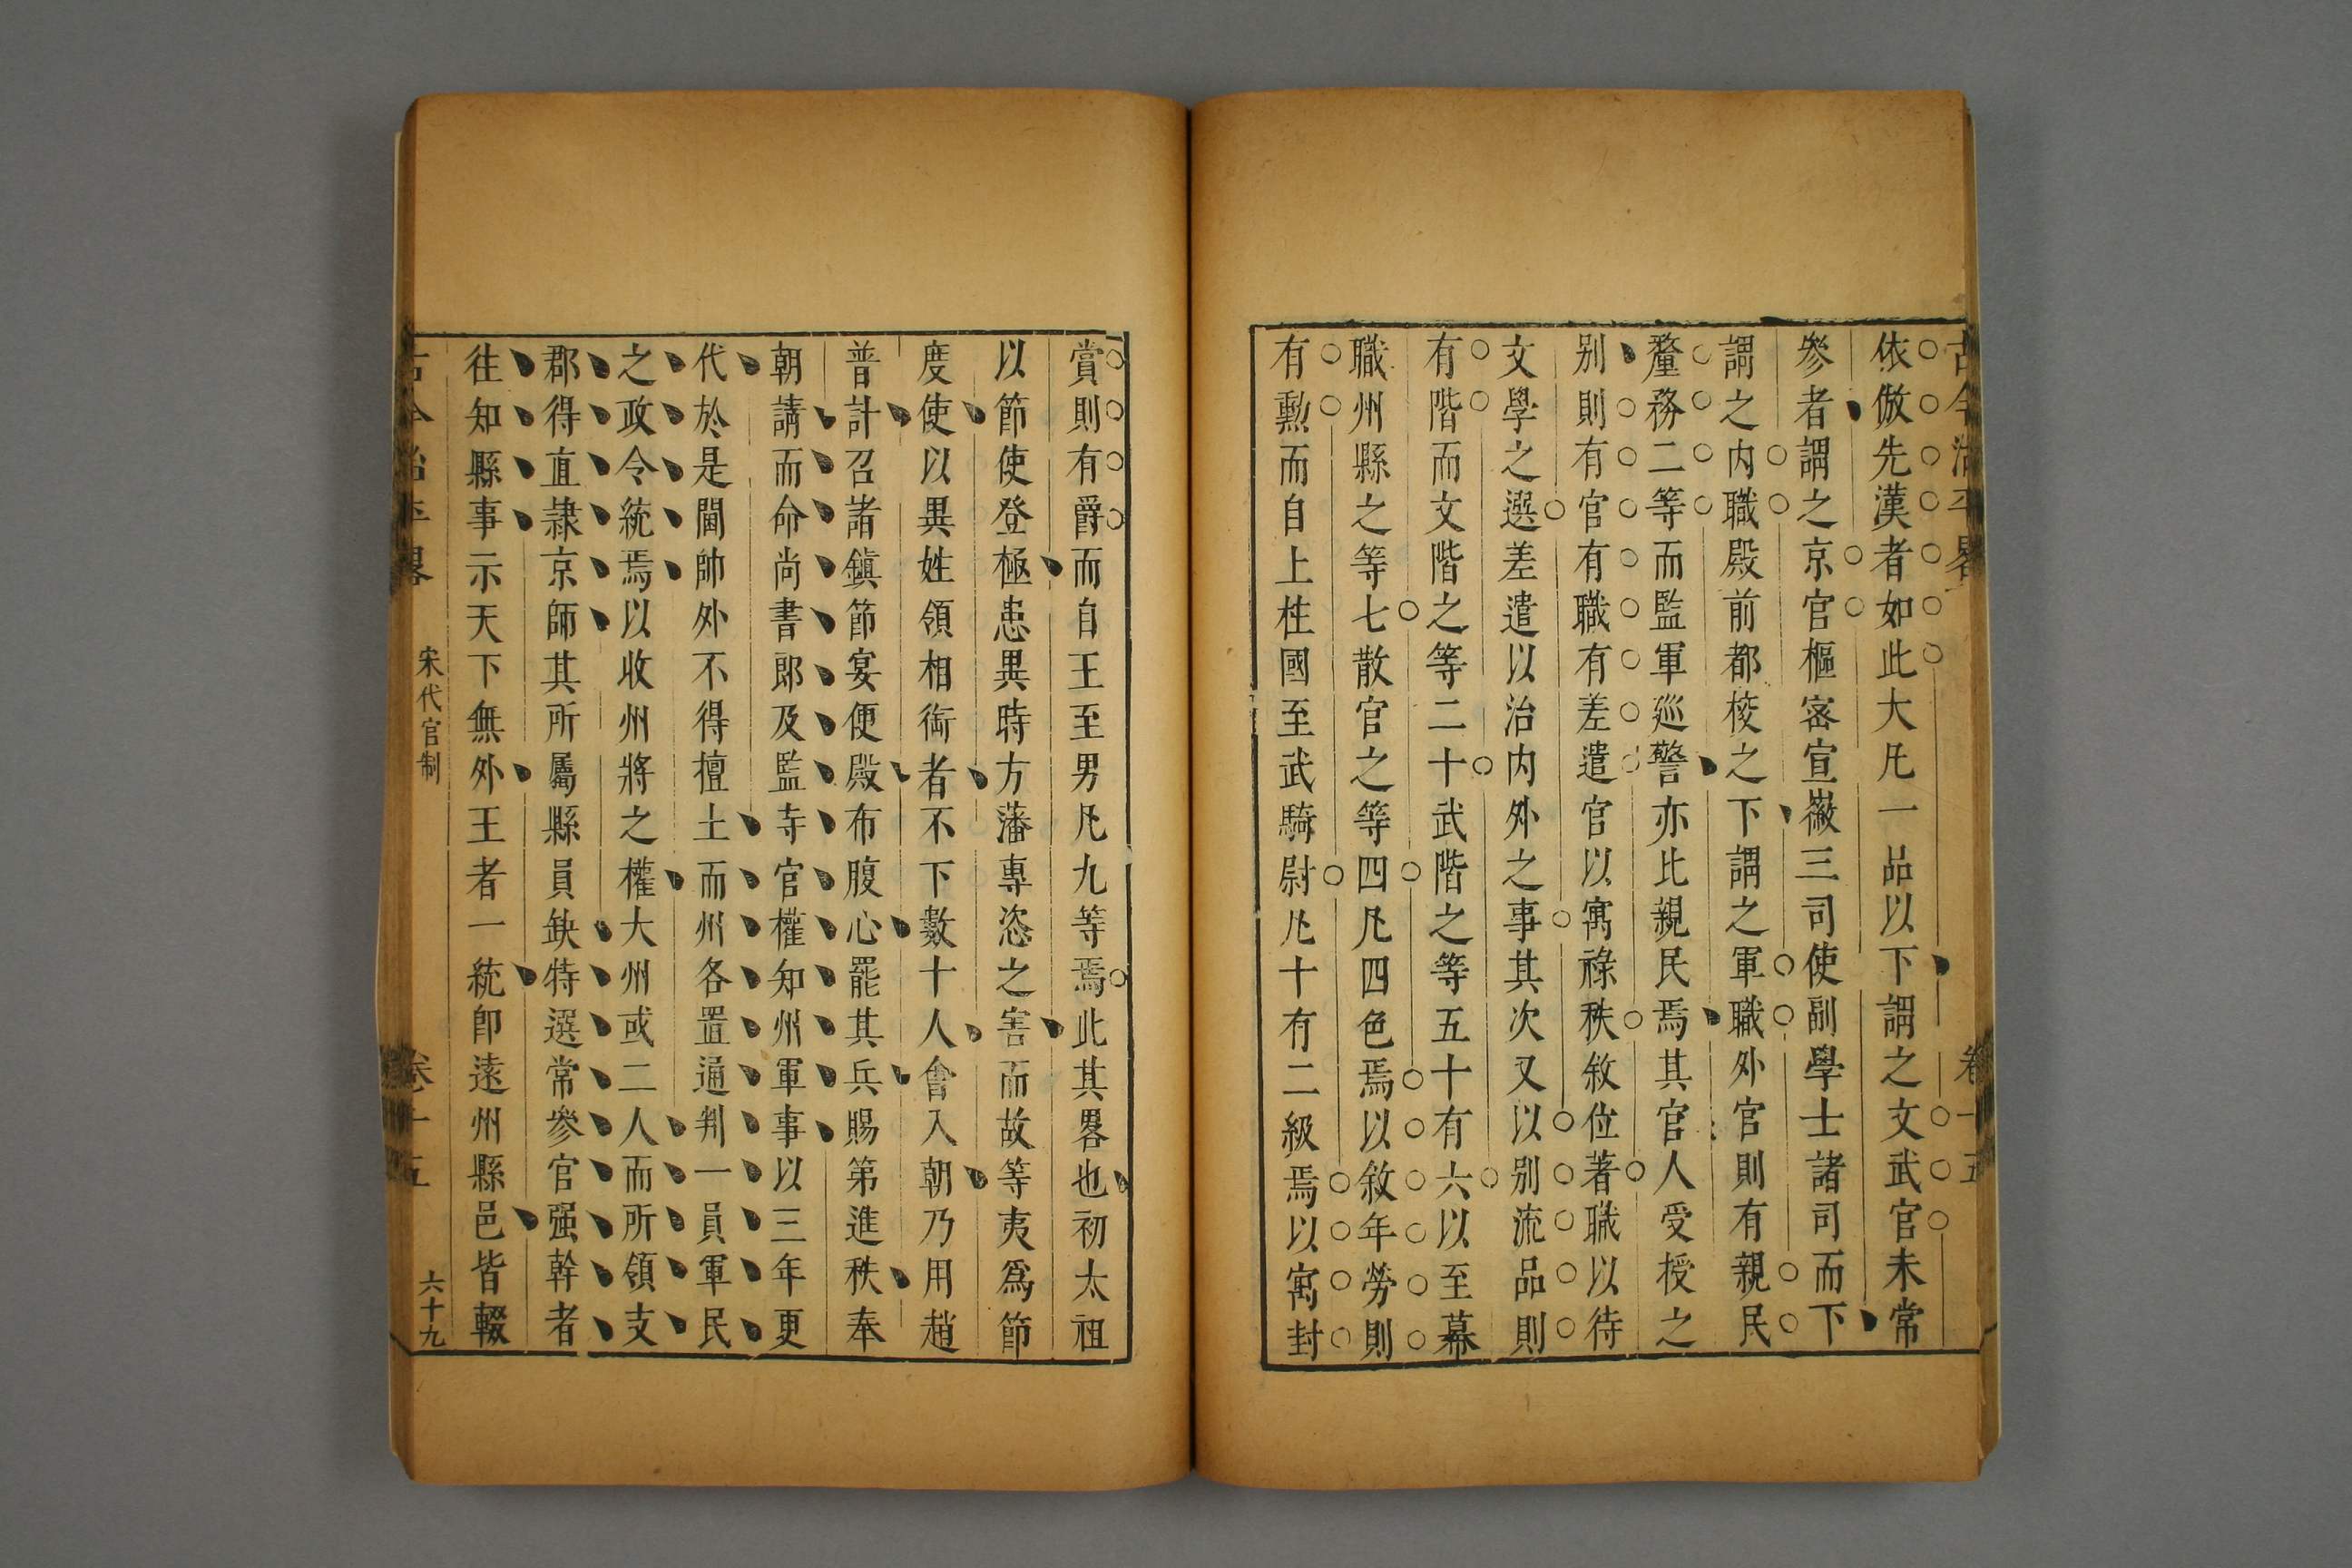 古今治平畧
卷十五
依倣先漢者如此大凡一品以下謂之文武官未常
參者謂之京官樞宻宣徽三司使副學士諸司而下
謂之内職殿前都校之下謂之軍職外官則有親民
釐務二等而監軍廵警亦比親民焉其官人受授之
别則有官有職有差遣官以寓祿秩敘位著職以待
文學之選差遣以治内外之事其次又以别流品則
有階而文階之等二十武階之等五十有六以至幕
職州縣之等七散官之等四凡四色焉以敘年勞則
有勲而自上柱國至武騎尉凡十有二級焉以寓封
賞則有爵而自王至男凡九等焉此其畧也初太祖
以節使登極患異時方藩專恣之害而故等夷爲節
度使以異姓領相銜者不下數十人會入朝乃用趙
普計召諸鎮節宴便殿布腹心罷其兵賜第進秩奉
朝請而命尚書郎及監寺官權知州軍事以三年更
代於是閫帥外不得擅土而州各置通判一員軍民
之政令統焉以收州將之權大州或二人而所領支
郡得直隷京師其所屬縣員缺特選常參官强幹者
往知縣事示天下無外王者一統卽遠州縣邑皆輟
古今治平畧
宋代官制
卷十五
六十九